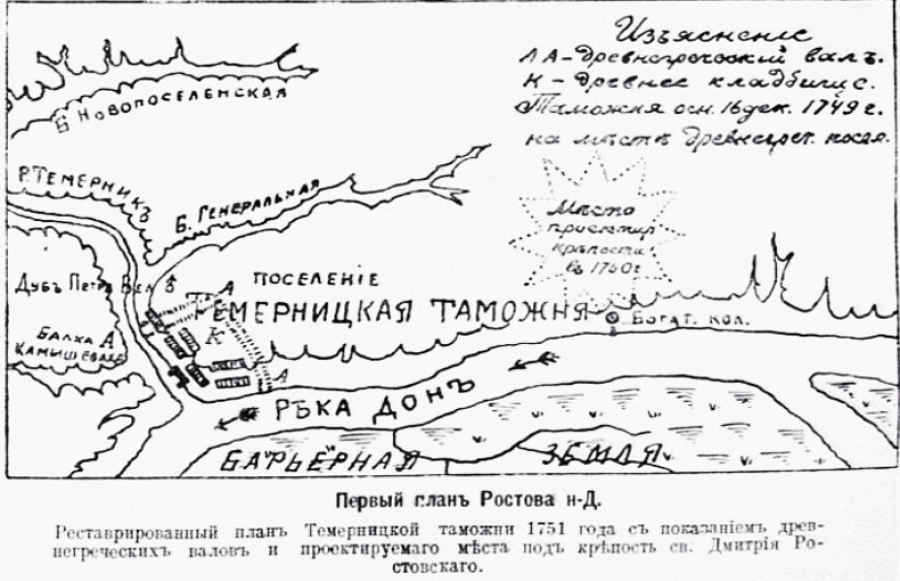 Изъяснение
АА - древнегреческий валъ.
К - древнее кладбище.
Таможня осн. 16 дек. 1749 г.
на мѣстѣ древнегреч. посел.
Б. Новопоселенская
Р. Темерникъ
Б. Генеральная
Мѣсто
проектир
крѣпости
въ 1760 г
Дубъ Петра Вел.
ПОСЕЛЕНІЕ
А
ТЕМЕРНИЦКАЯ ТАМОЖНЯ
Богат. кол.
К
Балка
Камышеваха
А
А
РѢКА ДОНЪ
БАРЬЕРНАЯ ЗЕМЛЯ
Первый планъ Ростова н-Д.
Реставрированный планъ Темерницкой таможни 1751 года съ показаніемъ древ-
негреческихъ валовъ и проектируемаго мѣста подъ крѣпость св. Дмитрія Ро-
стовскаго.